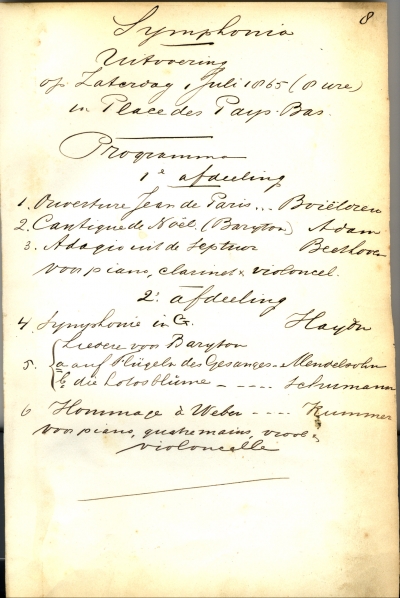 8
Symphonia
Uitvoering
op Zaterdag 1 Juli 1865 (8 ure)
in Place des Pays-Bas.
Programma
1e afdeeling
1. Ouverture Jean de Paris... Boiëldieu
2. Cantique de Noël (Baryton) Adam
3. Adagio uit de Septuor Beethoven
voor piano, clarinet & violoncel.
2e afdeeling
4 Symphonie in G. Haydn
Liedere voor Baryton
5. a auf Flügeln des Gesanges - Mendelsohn
b die Lotosblüme - - - - - Schumann
6 Hommage à Weber - - - - Kummer
voor piano, quatremains, viool &
violoncelle